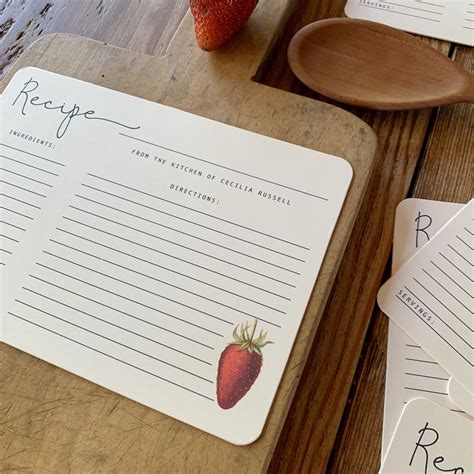 Recipe
FROM THE KITCHEN OF CECILIA RUSSELL
INGREDIENTS:
DIRECTIONS:
SERVINGS:
R
SERVINGS:
Re